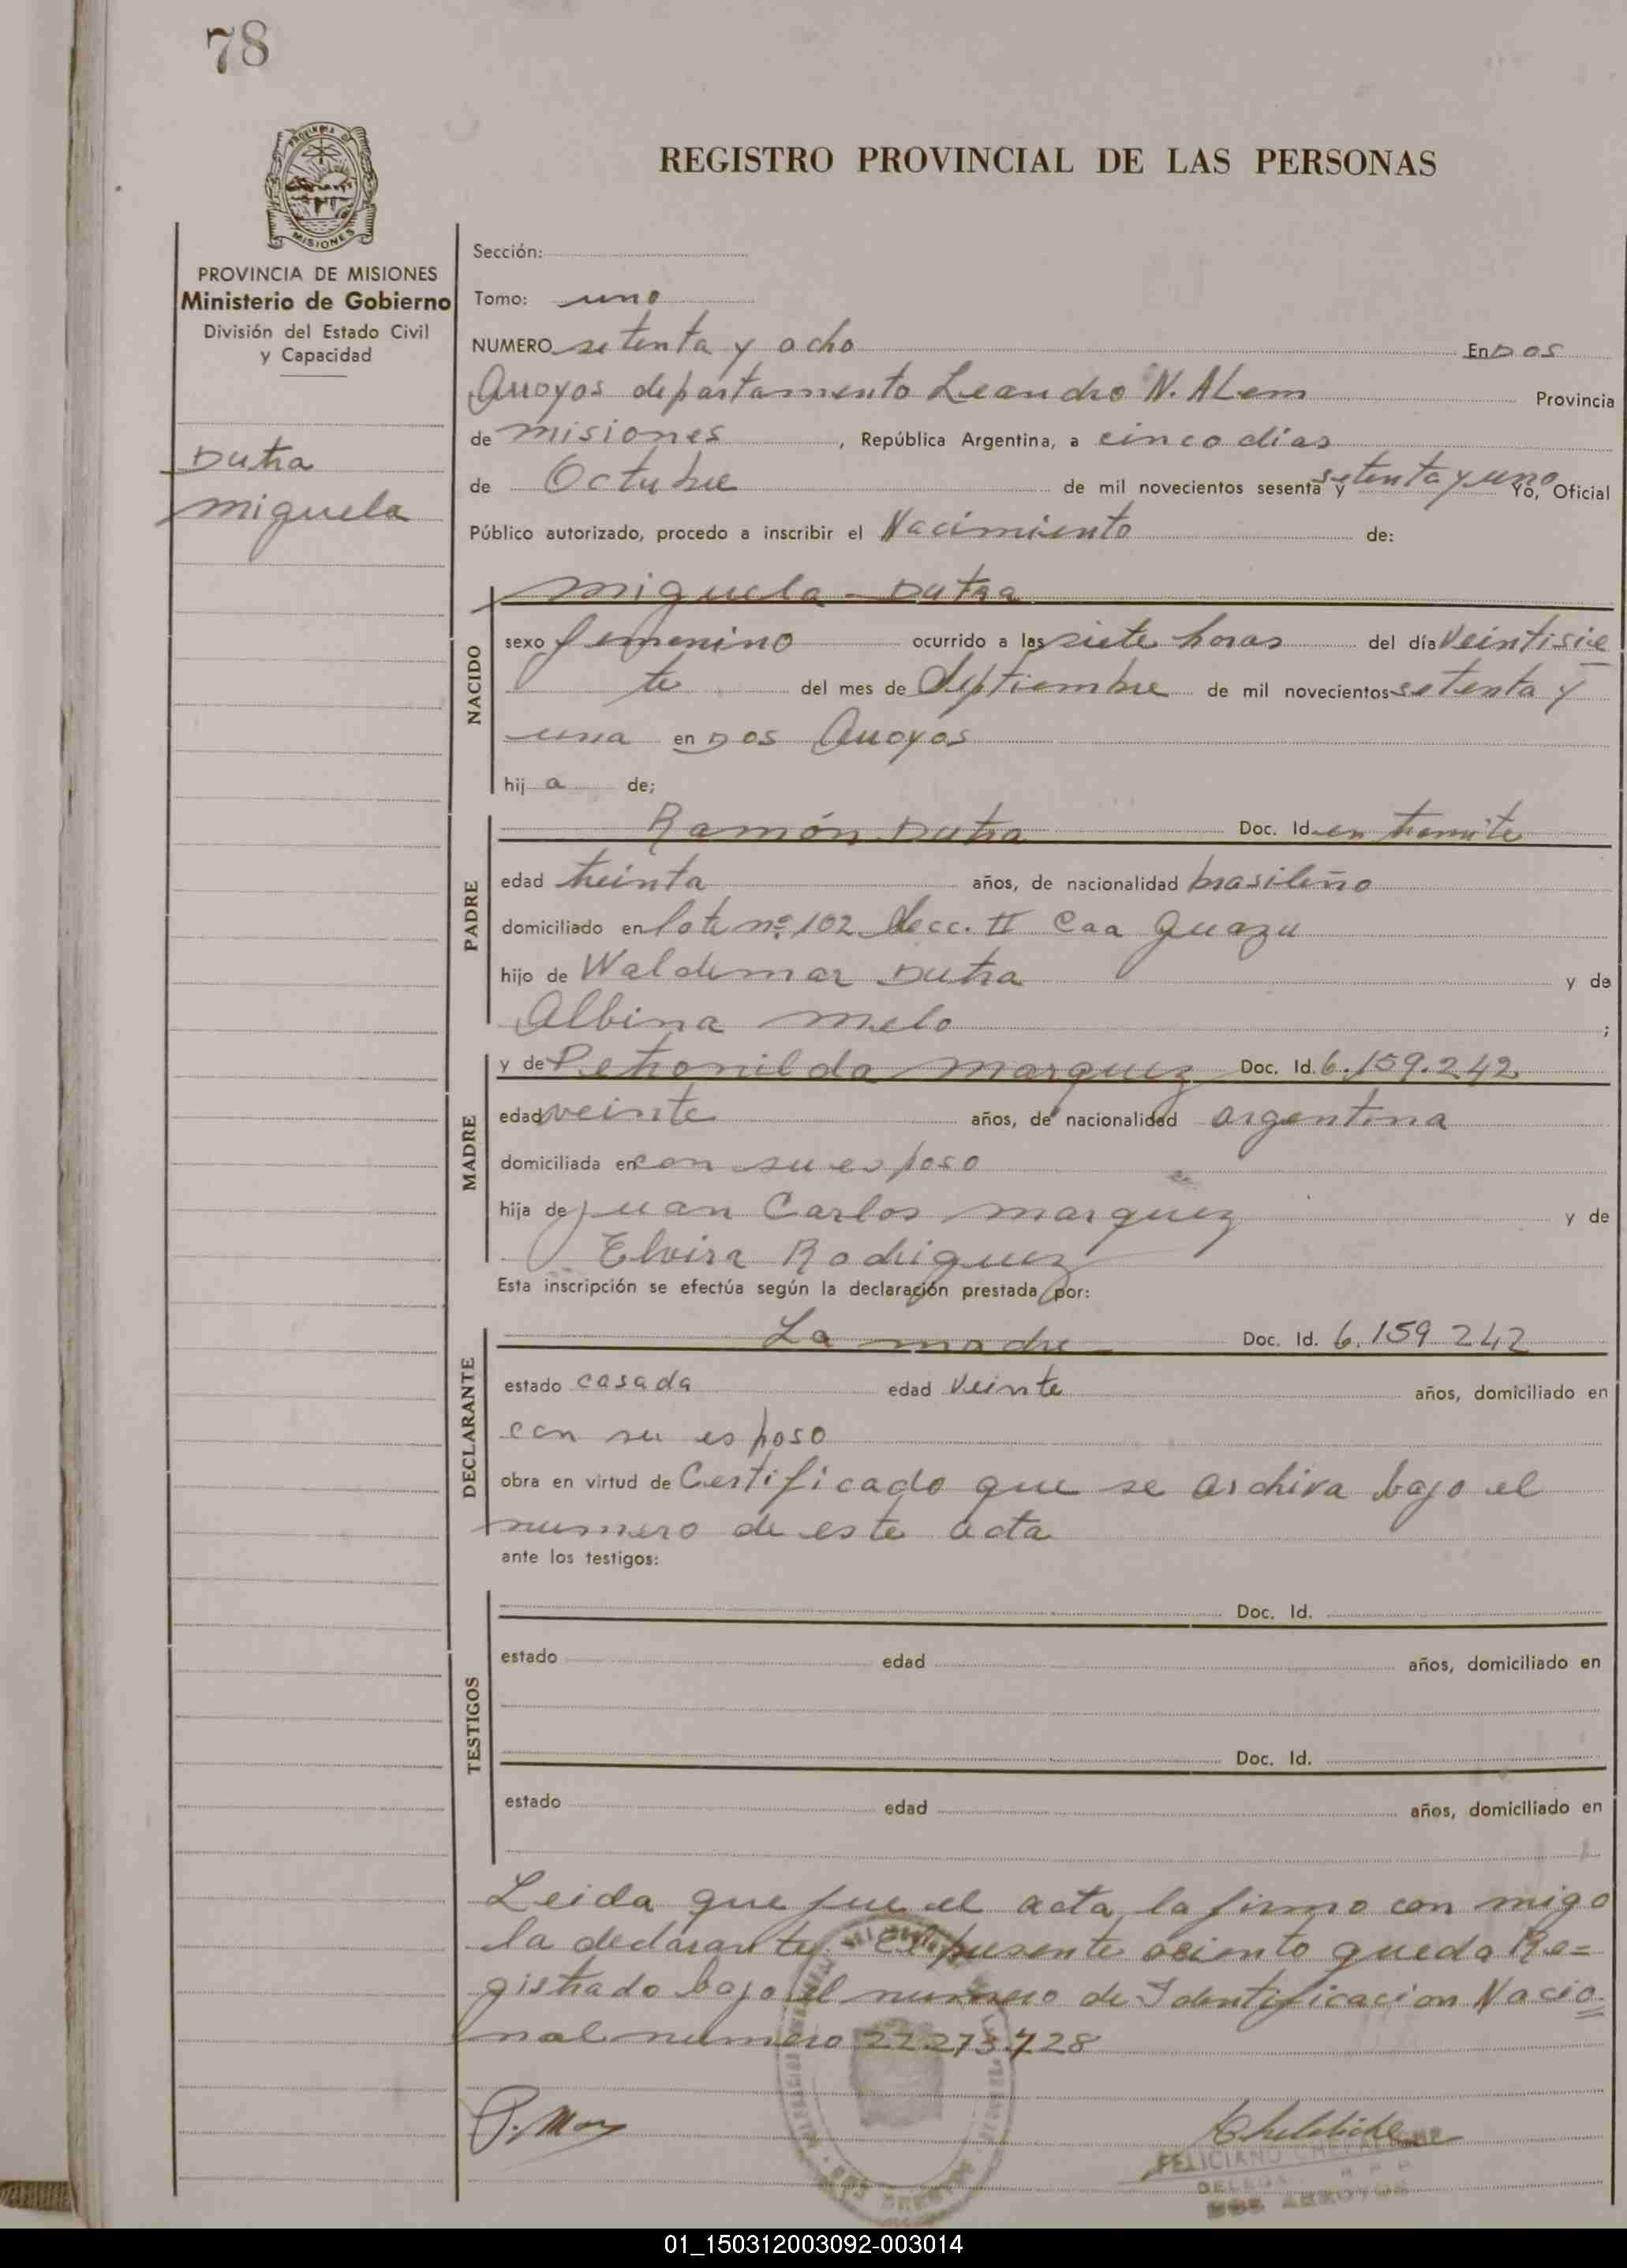 78
PROVINCIA DE
MISIONES
REGISTRO PROVINCIAL DE LAS PERSONAS
PROVINCIA DE MISIONES
Ministerio de Gobierno
División del Estado Civil
y Capacidad
Dutra
Miguela
Sección:
Tomo: uno
NUMERO setenta y ocho En Dos
Arroyos departamento Leandro N. ALem Provincia
de Misiones, República Argentina, a cinco dias
de Octubre de mil novecientos sesenta y setenta y uno Yo, Oficial
Público autorizado, procedo a inscribir el Nacimiento de:
NACIDO
Miguela Dutra
sexo femenino ocurrido a las siete horas del día Veintisie
te del mes de Septiembre de mil novecientos setenta y
una en Dos Arroyos
hij a de;
PADRE
Ramón Dutra Doc. Id. en tramite
edad treinta años, de nacionalidad brasileño
domiciliado en lote nº 102 Secc. II Caa Guazu
hijo de Waldemar Dutra y de
Albina Melo ;
MADRE
y de Petronilda Marquez Doc. Id. 6.159.242
edad veinte años, de nacionalidad argentina
domiciliada en con su esposo
hija de Juan Carlos Marquez y de
Elvira Rodriguez
Esta inscripción se efectúa según la declaración prestada por:
DECLARANTE
La madre Doc. Id. 6.159 242
estado casada edad Veinte años, domiciliado en
con su esposo
obra en virtud de Certificado que se archiva bajo el
numero de este acta
ante los testigos:
TESTIGOS
Doc. Id.
estado edad años, domiciliado en
Doc. Id.
estado edad años, domiciliado en
Leida que fue el acta la firmo con migo
la declarante. El presente asiento queda Re=
gistrado bajo el numero de Identificacion Nacio=
nal numero 22.273.728
P. Mar
FELICIANO
DOS ARROYOS
01_150312003092-003014